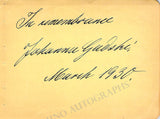 In remembrance
Johanna Gadski,
March 1930.
TINO AUTOGRAPH